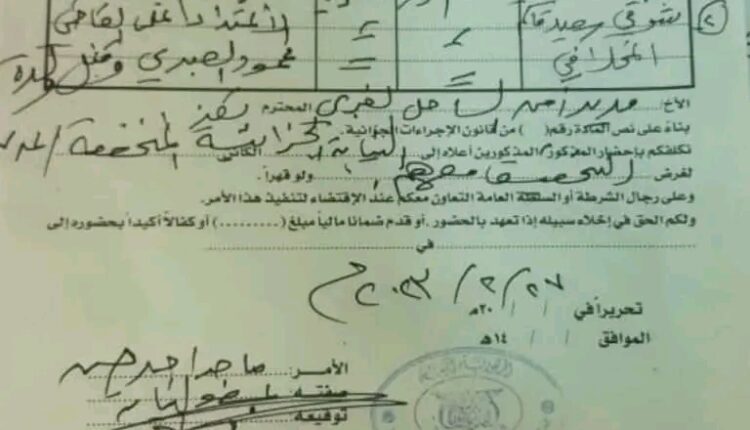 ٢ شوقي سعيد الاعتداء على القاضي
المخلافي = = محمود الصبري وقتل
الأخ/ مدير أمن الساحل الغربي المحترم
بناءً على نص المادة رقم ( ) من قانون الإجراءات الجزائية.
نكلفكم بإحضار المذكور/ المذكورين أعلاه إلى النيابة الجزائية المتخصصة
لغرض التحقيق معهم ولو قهراً.
وعلى رجال الشرطة أو السلطة العامة التعاون معكم عند الإقتضاء لتنفيذ هذا الأمر.
ولكم الحق في إخلاء سبيله إذا تعهد بالحضور. أو قدم ضماناً مالياً مبلغ (.........) أو كفالاً أكيداً بحضوره إلى
في
تحريراً في ٢٧ / ٢ / ٢٠٢٣م
/ / ٢٠م
الموافق / / ١٤هـ
الأمر: ماجد احمد
صفته
توقيعه